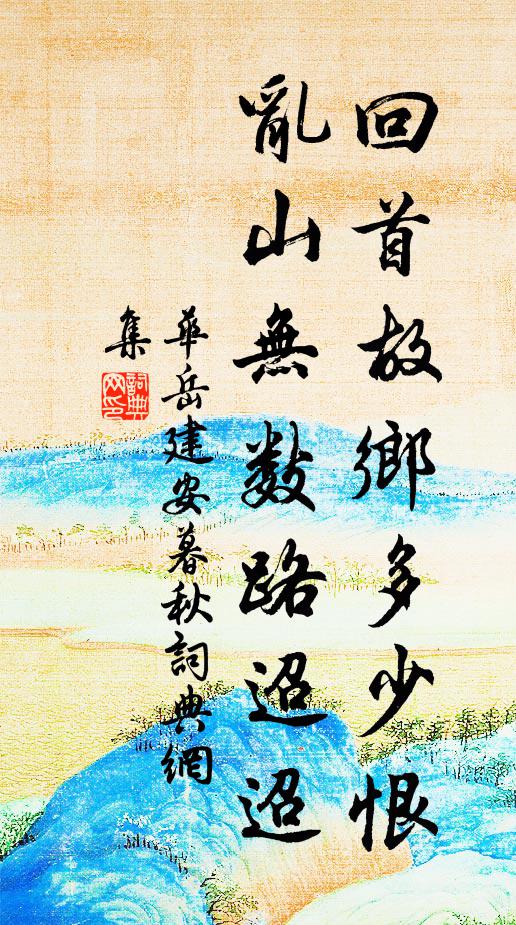 回首故鄉多少恨
亂山無数路迢迢
華岳建安暮秋詞典網
集
詞典網印